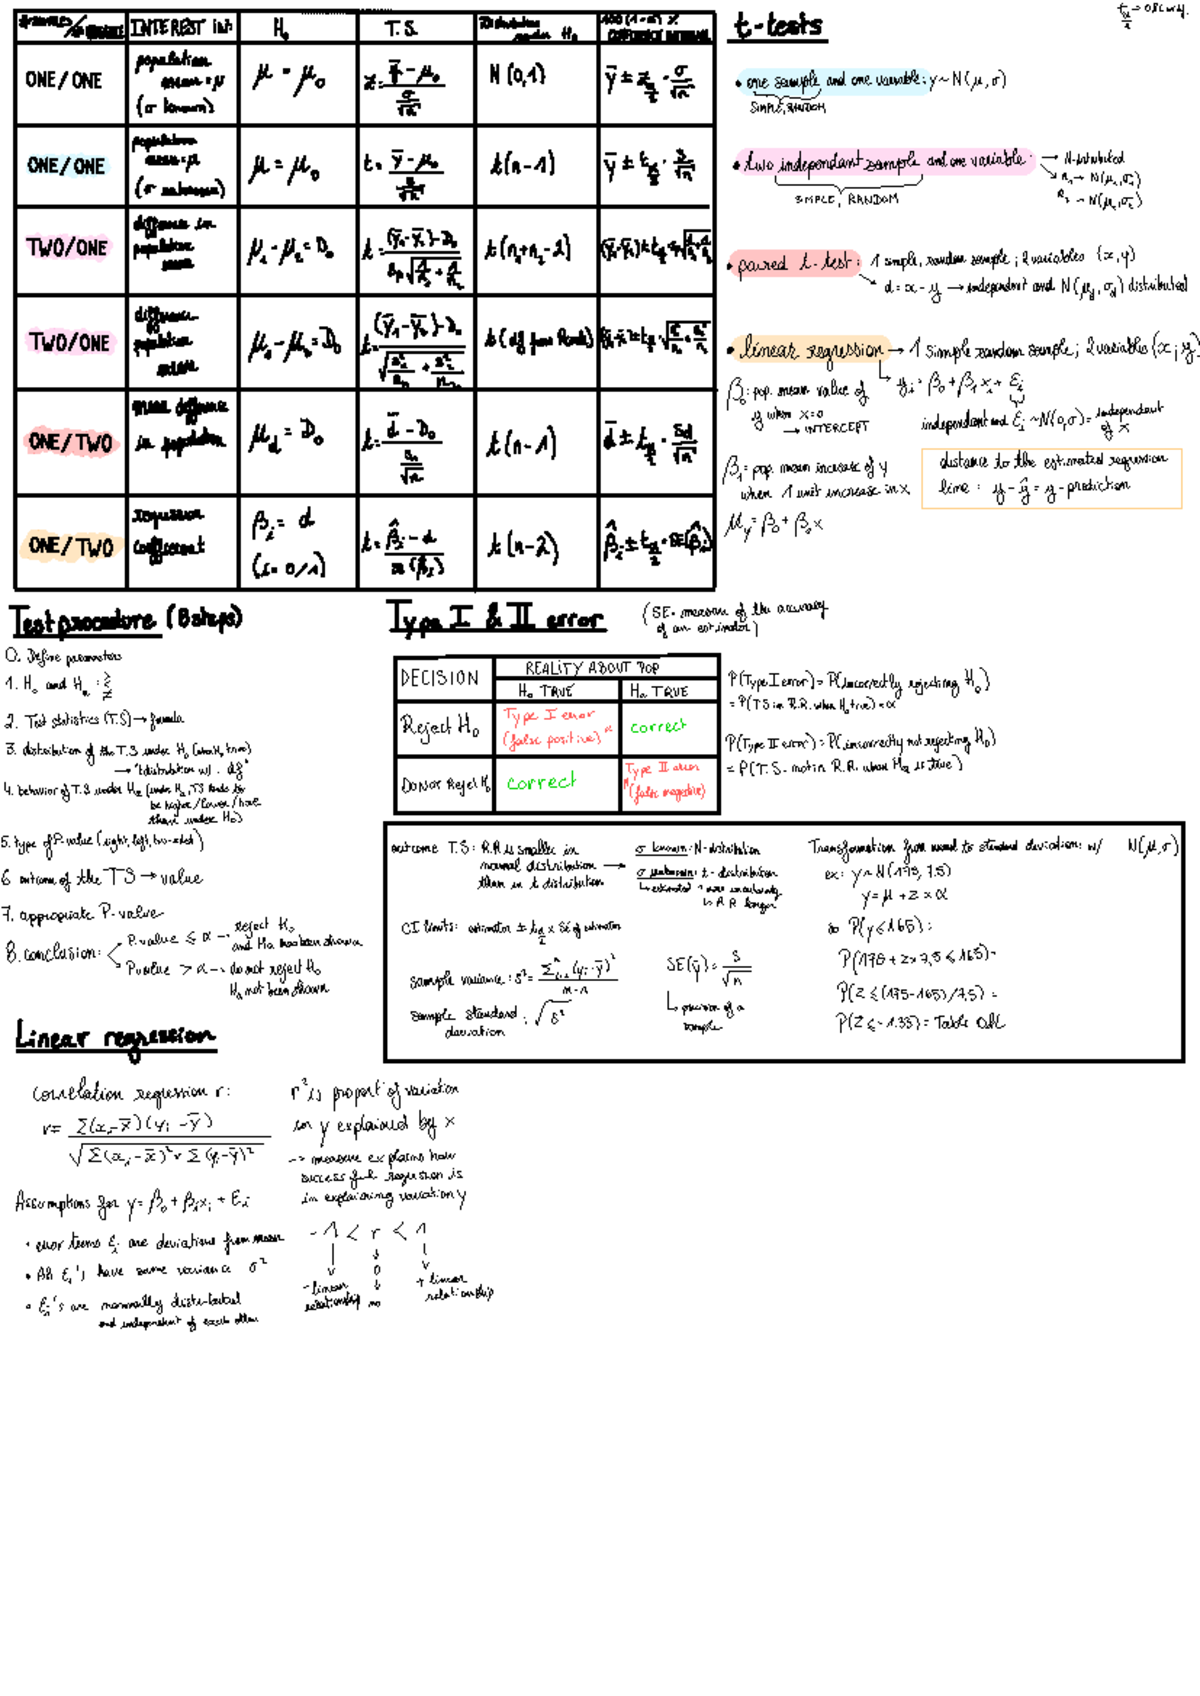 INTEREST in:
H₀
T.S.
Distribution under H₀
100(1-α)%
CONFIDENCE INTERVAL
ONE/ONE
population mean = μ (σ known)
μ = μ₀
z = (ȳ - μ₀) / (σ/√n)
N(0,1)
ȳ ± z_{α/2} · σ/√n
ONE/ONE
population mean = μ (σ unknown)
μ = μ₀
t = (ȳ - μ₀) / (s/√n)
t(n-1)
ȳ ± t_{α/2} · s/√n
TWO/ONE
difference in population mean
μ₁ - μ₂ = D₀
t(n₁+n₂-2)
TWO/ONE
difference population
μ₁ - μ₂ = D₀
ONE/TWO
mean difference in population
μ_d = D₀
t(n-1)
d̄ ± t_{α/2} · Sd/√n
ONE/TWO
regression coefficient
βᵢ = d
(i = 0/1)
t(n-2)
β̂ᵢ ± t_{α/2} · SE(β̂ᵢ)
t-tests
• one sample and one variable: y ~ N(μ, σ)
SIMPLE, RANDOM
• two independant sample and one variable → N-distributed
→ N(μ₁, σ₁)
→ N(μ₂, σ₂)
SIMPLE, RANDOM
• paired t-test: 1 simple, random sample; 2 variables (x, y)
d = x - y → independent and N(μ_d, σ_d) distributed
• linear regression → 1 simple random sample; 2 variables (x; y)
yᵢ = β₀ + β₁xᵢ + εᵢ
β₀: pop. mean value of
y when x=0
→ INTERCEPT
independent and εᵢ ~ N(0, σ) = independent
of x
β₁ = pop. mean increase of y
when 1 unit increase in x
μ_y = β₀ + β₀x
distance to the estimated regression
line: y - ŷ = y - prediction
Test procedure (8 steps)
0. Define parameters
1. H₀ and Hₐ : > < ≠
2. Test statistics (T.S) → formula
3. distribution of the T.S under H₀ (when H₀ true)
→ "t distribution w/. df"
4. behavior of T.S under Hₐ (under Hₐ, TS tends to
be higher/lower/
than under H₀)
5. type of P-value (right, left, two-sided)
6 outcome of the TS → value
7. appropriate P-value
8. conclusion:
P-value ≤ α → reject H₀
and Ha has been shown
P-value > α → do not reject H₀
Hₐ not been shown
Type I & II error
(SE = measure of the accuracy
of an estimator)
DECISION
REALITY ABOUT POP
H₀ TRUE
Hₐ TRUE
Reject H₀
Type I error
(false positive) α
correct
Do not Reject H₀
correct
Type II error
(false negative)
P(Type I error) = P(incorrectly rejecting H₀)
= P(TS in R.R. when H₀ true) = α
P(Type II error) = P(incorrectly not rejecting H₀)
= P(T.S. not in R.R. when Hₐ is true)
outcome T.S: R.R is smaller in
normal distribution →
than in t distribution
σ known: N-distribution
σ unknown: t-distribution
CI limits: estimator ± t_{α/2} × SE of estimator
sample variance: s² = Σⁿᵢ₌₁ (yᵢ - ȳ)² / n-1
sample standard
deviation: √s²
SE(ȳ) = s/√n
↳ precision of a
sample
standard deviation: w/ N(μ, σ)
ex: y ~ N(175, 7.5)
y = μ + z × α
so P(y ≤ 165):
P(175 + z × 7,5 ≤ 165) =
P(Z ≤ (175-165)/7.5) =
P(Z ≤ -1.33) = Table
Linear regression
correlation regression r:
r = Σ(xᵢ - x̄)(yᵢ - ȳ) / √(Σ(xᵢ - x̄)² × Σ(yᵢ - ȳ)²)
r² is proport° of variation
in y explained by x
→ measure explains how
successful regression is
in explaining variation y
Assumptions for y = β₀ + β₁xᵢ + Eᵢ
• error terms εᵢ are deviations from mean
• All εᵢ's have same variance σ²
• εᵢ's are normally distributed
and independent of each other
-1 < r < 1
- linear
relationship
0
no
+ linear
relationship